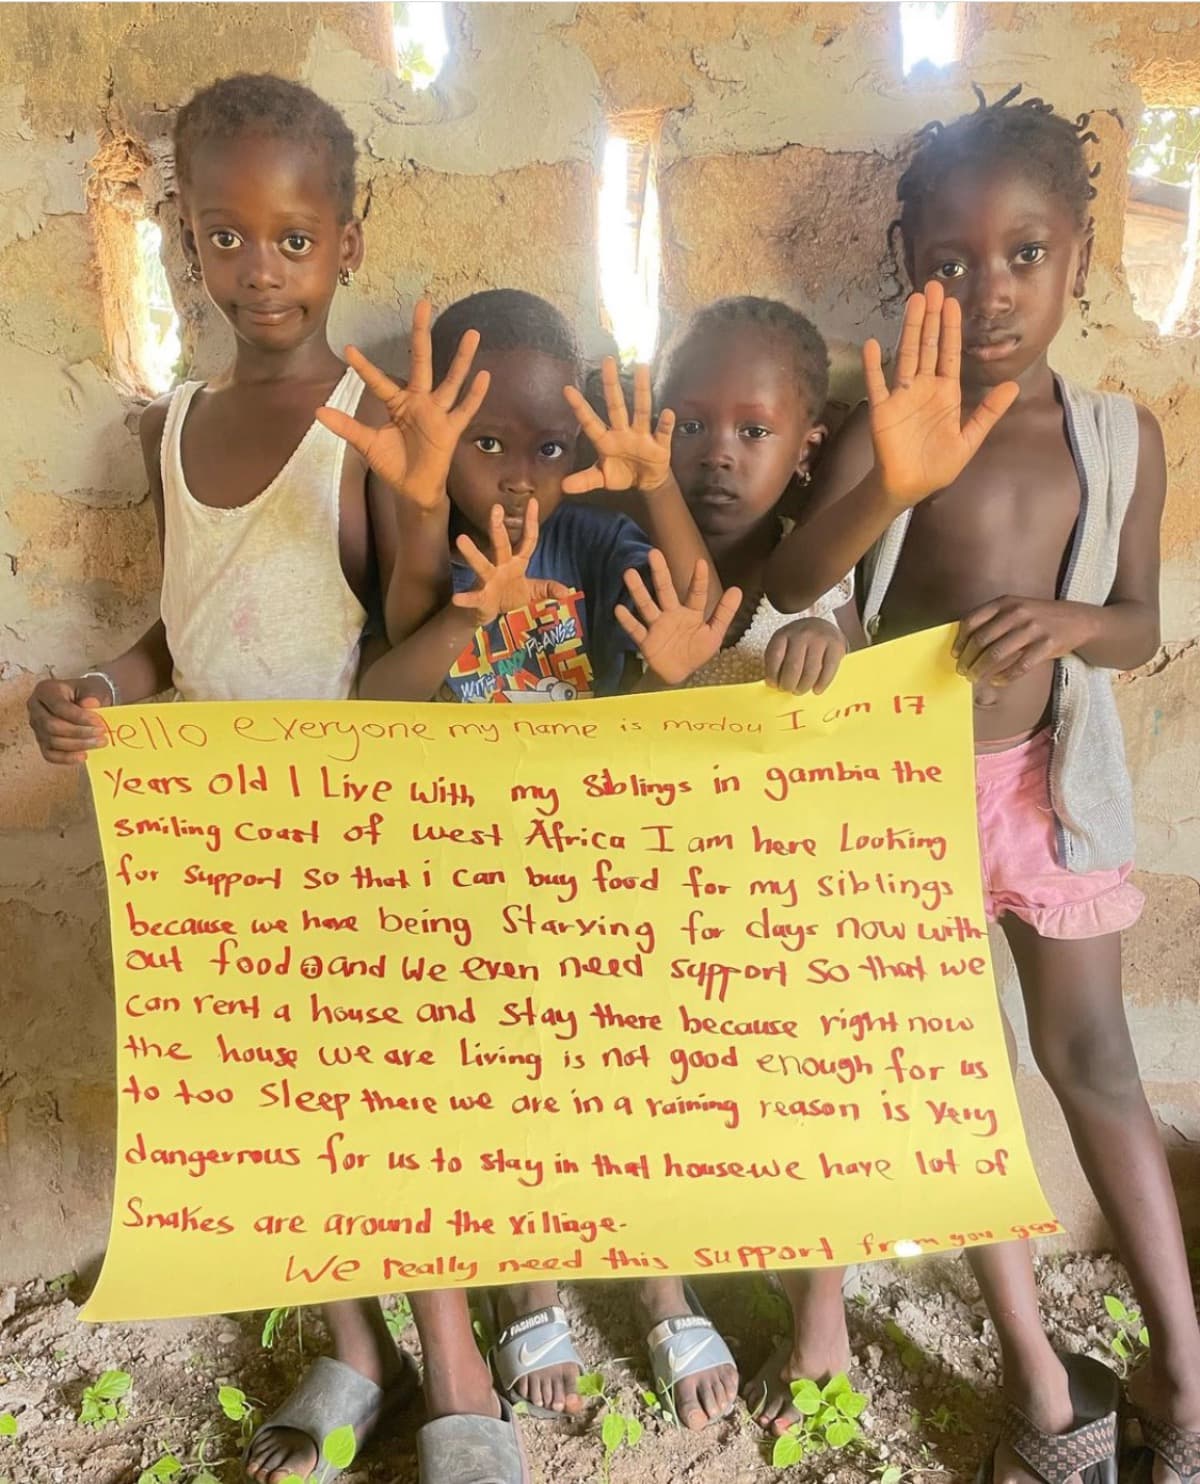 Hello everyone my name is modou I am 17
Years old I Live with my Siblings in gambia the
smiling coast of west Africa I am here Looking
for support so that i can buy food for my siblings
because we have being Starving for days now with
out food and We even need support so that we
can rent a house and stay there because right now
the house we are living is not good enough for us
to too sleep there we are in a raining reason is very
dangerrous for us to stay in that house we have lot of
Snakes are around the village.
We really need this support from you
WITH AND PLANS
FASHION
FASHION